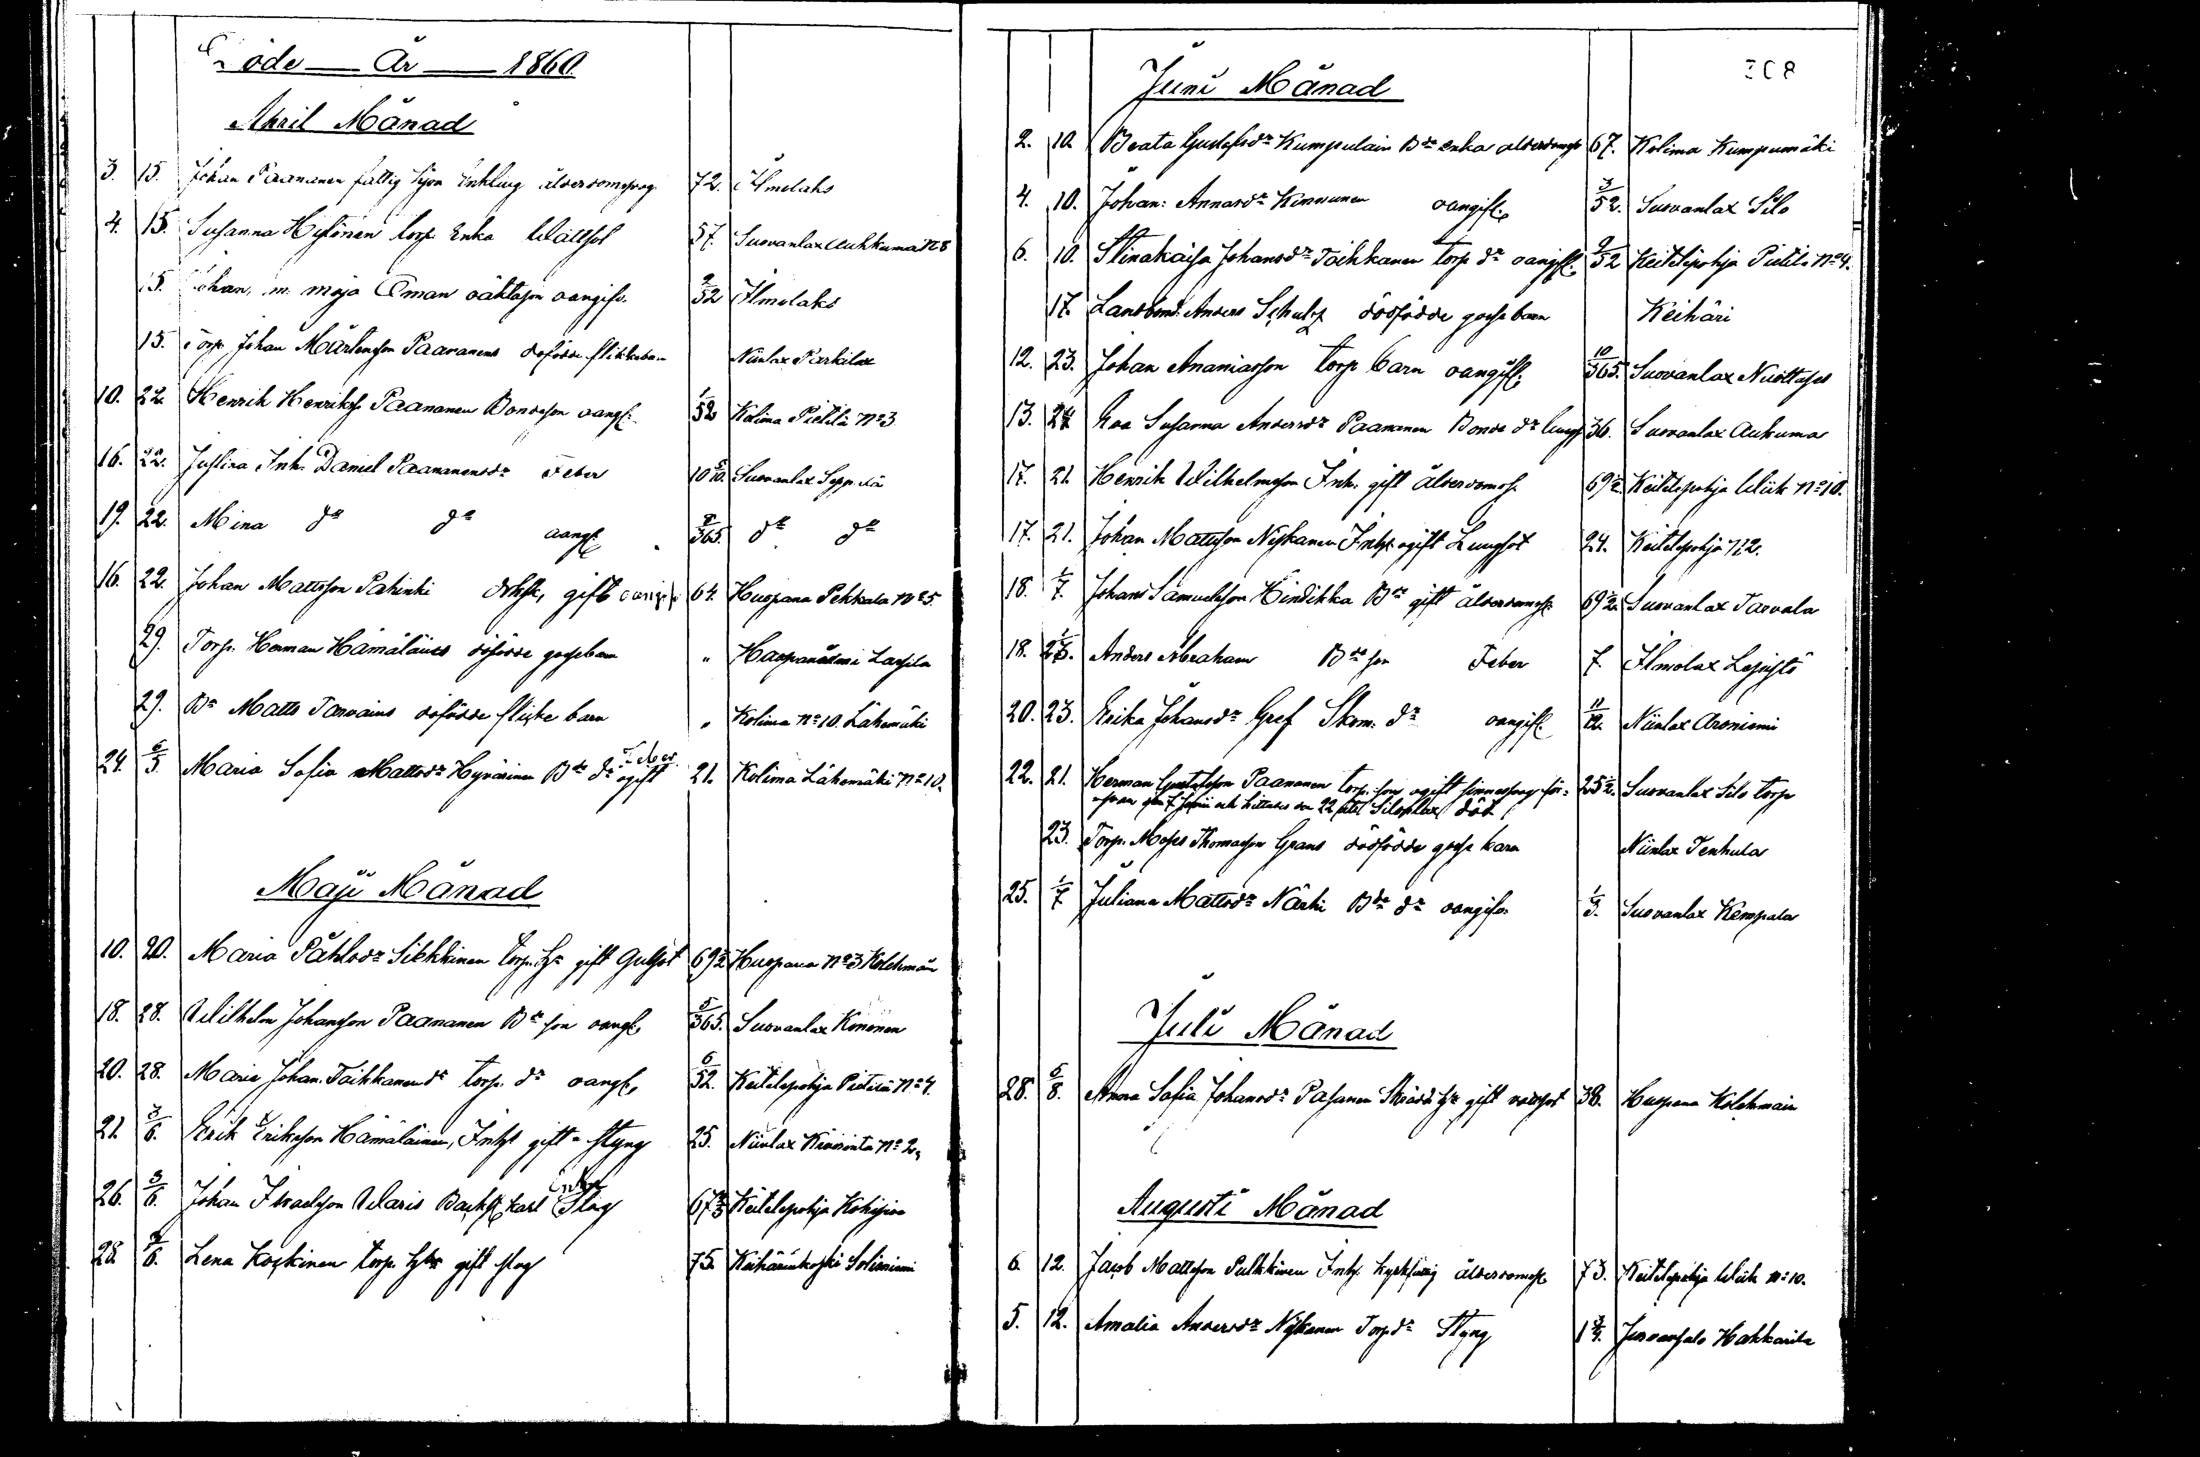 Döde — År — 1860.
April Månad
3. 15. Johan Paananen fattig hjon Enkling ålderdomsvag 72. Ilmolaks
4. 15. Susanna Hytönen torp. Enka Wattsot 57. Suovanlax Auhkuma N:o 8
15. Johan, m. moja Öman oäktason oangifv. 2/52 Ilmolaks
15. Torp. Johan Mårtensson Paananens dödfödde flickebarn Niinlax Parkilax
10. 22. Henrik Henrikss. Paananen Bondeson oangf. 1/52 Kolima Pietilä N:o 3
16. 22. Justina Inh. Daniel Paananensdr Feber 10 5/10. Suovanlax
19. 22. Mina do do oangf. 8/365. do do
16. 22. Johan Mattsson Pahinki gift oangif. 64. Huopana Pekkala N:o 5.
29. Torp. Herman Hämäläines dödfödde gossebarn "
29. Bn Matts Tarvains dödfödde flicke barn " Kolima N:o 10. Lähemäki
24. 6/5. Maria Sofia Mattsdr Hyvärinen Bde dr ogift Feber 21. Kolima Lähemäki N:o 10.
Maji Månad
10. 20. Maria Påhlsdr Sikkinen torp. h:u gift Gulsot 69 1/2 Huopana N:o 3 Kolehmän
18. 28. Wilhelm Johansson Paananen Bde son oangf. 5/365. Suovanlax Kononen
20. 28. Maria Johan. Toikkanen dr torp. dr oangf. 6/52. Keitelepohja Pietilä N:o 4.
21. 3/6. Erik Eriksson Hämäläinen, Inhs gift - styng 25. Niinlax N:o 2.
26. 3/6. Johan Israelsson Waris Backst. karl Enkl. Slag 67 2/3 Keitelepohja
28. 3/6. Lena Koskinen torp. hu gift slag 75. Keihärinkoski
308
Juni Månad
2. 10. Beata Gustafsdr Kumpulain Bde enka ålderdomsv. 67. Kolima Kumpumäki
4. 10. Johan: Annasdr Kinnunen oangifv. 3/52. Suovanlax Silo
6. 10. Stinakaisa Johansdr Toikkanen torp dr oangifv. 9/52 Keitelepohja Pietilä N:o 4.
17. Landbond. Anders Schulz dödfödde gosse barn Keihäri
12. 23. Johan Ananiasson torp barn oangifv. 10/365. Suovanlax
13. 24 Eva Susanna Andersdr Paananen Bonde dr Lungs. 36. Suovanlax Aukuma
17. 21. Henrik Wilhelmsson Inh. gift ålderdomsv. 69 1/2. Keitelepohja Wiik N:o 10.
17. 21. Johan Mattsson Nykanen Inhs. ogift Lungsot 24. Keitelepohja N:2.
18. 1/7. Johan Samuelsson Hindikka Bde gift ålderdomsv. 69 1/2. Suovanlax Tarvala
18. Anders Abraham Bde son Feber 7. Ilmolax
20. 23. Erika Johansdr Gref Skom. dr oangifv. 11/12. Niinlax Aroniemi
22. 21. Herman Gustafsson Paananen torp. son ogift sinnessvag för= 25 1/2. Suovanlax Silo torp
svan den 7 Junii och hittades den 22 död
23. Torp. Moses Thomasson Grans dödfödde gosse barn Niinlax Tenhula
25. 1/7 Juliana Mattsdr Närhi Bde dr oangifv. 1/3. Suovanlax Kempala
Juli Månad
28. 5/8. Anna Sofia Johansdr Pasanen gift wattsot 38. Huopana Kolehmain
Augusti Månad
6. 12. Jacob Mattsson Pulkkinen Inhs. kyrkfattig ålderdomsv. 73. Keitelepohja Wiik N:o 10.
5. 12. Amalia Andersdr Nykanen Torp dr Styng 1 3/4. Jurvansalo Hakkarila